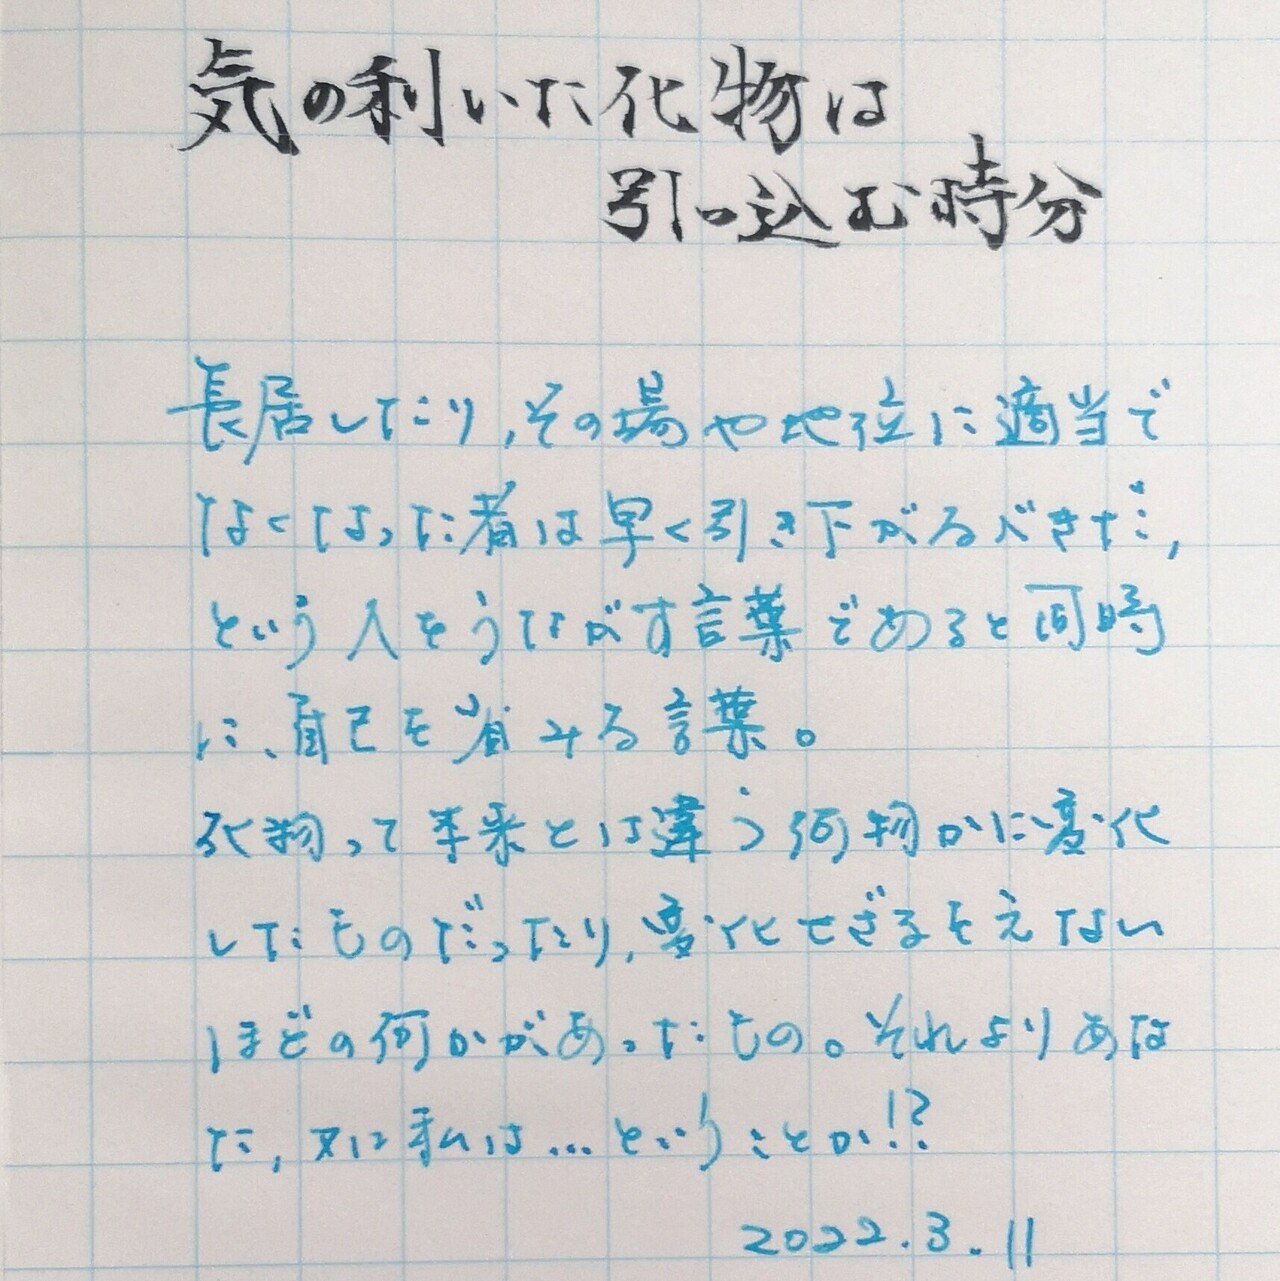 気の利いた化物は
引っ込む時分
長居したり,その場や地位に適当で
なくなった者は早く引き下がるべきだ,
という人をうながす言葉であると同時
に、自己を省みる言葉。
化物って本来とは違う何物かに変化
したものだったり,変化せざるをえない
ほどの何かがあったもの。それよりあな
た,又は私は…ということか!?
2022.3.11